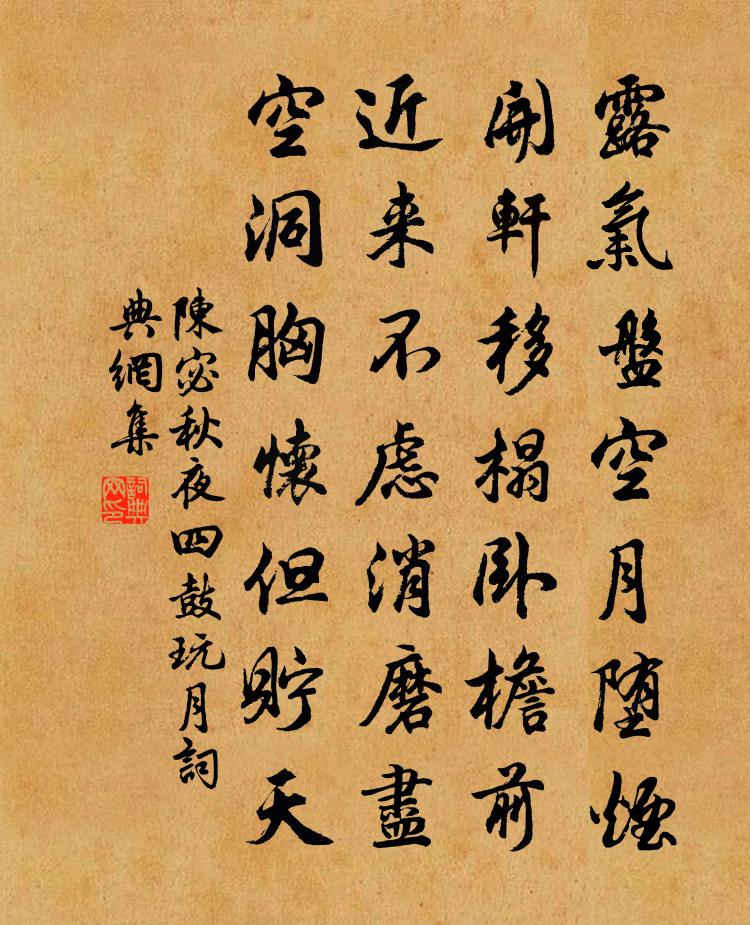 露氣盤空月墮煙
開軒移榻臥檐前
近来不慮消磨盡
空洞胸懷但貯天
陳宓秋夜四鼓玩月詞
典網集
詞典
网印